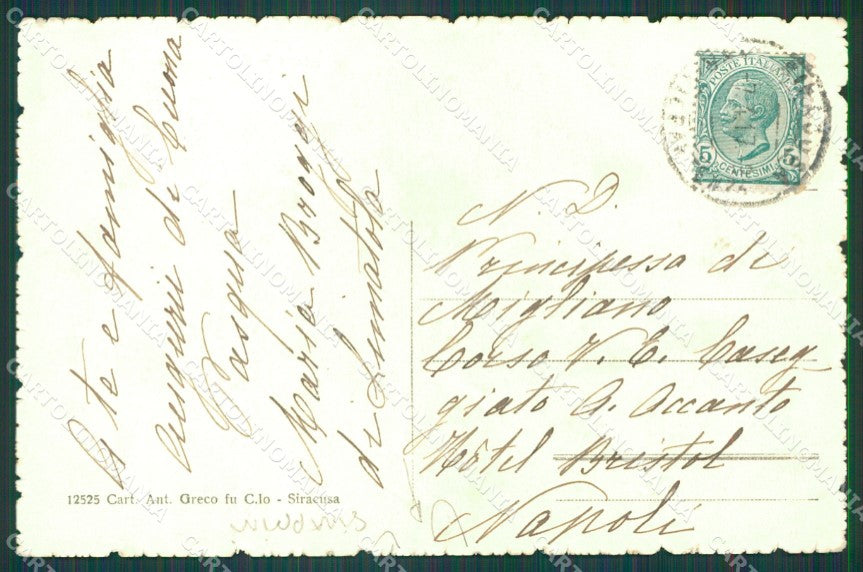 A te e famiglia
auguri di buona
Pasqua
Maria
di
N. D.
Principessa di
Migliano
Corso V. E. Caseg-
giato A. Accanto
Hôtel Bristol
Napoli
POSTE ITALIANE
5 5
CENTESIMI
12525 Cart. Ant. Greco fu C.lo - Siracusa
CARTOLINOMANIA